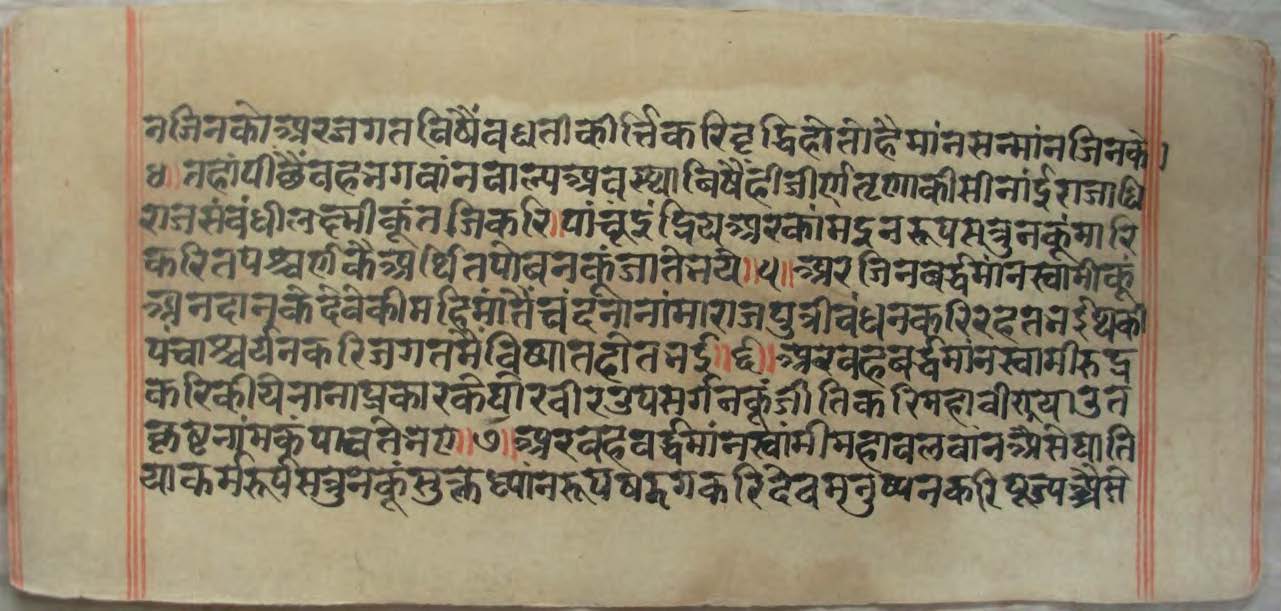 न जिनको अर जगत विषैं वधती कीर्त्ति करि वृद्धि होती है मांन सन्मांन जिनके।
४॥ तहां पीछैं वह भगवांन वाल्य अवस्था विषैं ही जीर्ण तृणा की सी नांई राजाधि
राज संबंधी लक्ष्मी कूं तजि करि। पांचूं इंद्रिय अर कांम इन रूप सत्रुन कूं मारि
करि तपश्चर्ण कै अर्थि तपोवन कूं जाते भये॥५॥ अर जिन बर्द्धमांन स्वामी कूं
अनदान के देवे की महिमां तैं चंदनां नांमा राजपुत्री वंधन करि रहत भई थकी
पंचाश्चर्यन करि जगत मैं विष्यात होत भई॥६॥ अर वह बर्द्धमांन स्वामी रुद्र
करि कीये नाना प्रकार के घोर वीर उपसर्गन कूं जीति करि महावीर या उत
कृष्ट नांम कूं पावते भए॥७॥ अर वह वर्द्धमांन स्वांमी महावलवांन अैसे घाति
या कर्म रूप सत्रुन कूं सुक्ल ध्यांन रूप षड्ग करि देव मनुष्यन करि पूज्य अैसे